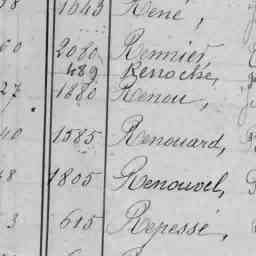 1643 René,
60 2080 Rennier,
489 Renoche,
27. 1680 Renou,
40 1585 Renouard,
48 1805 Renouvel,
3 615 Repessé,